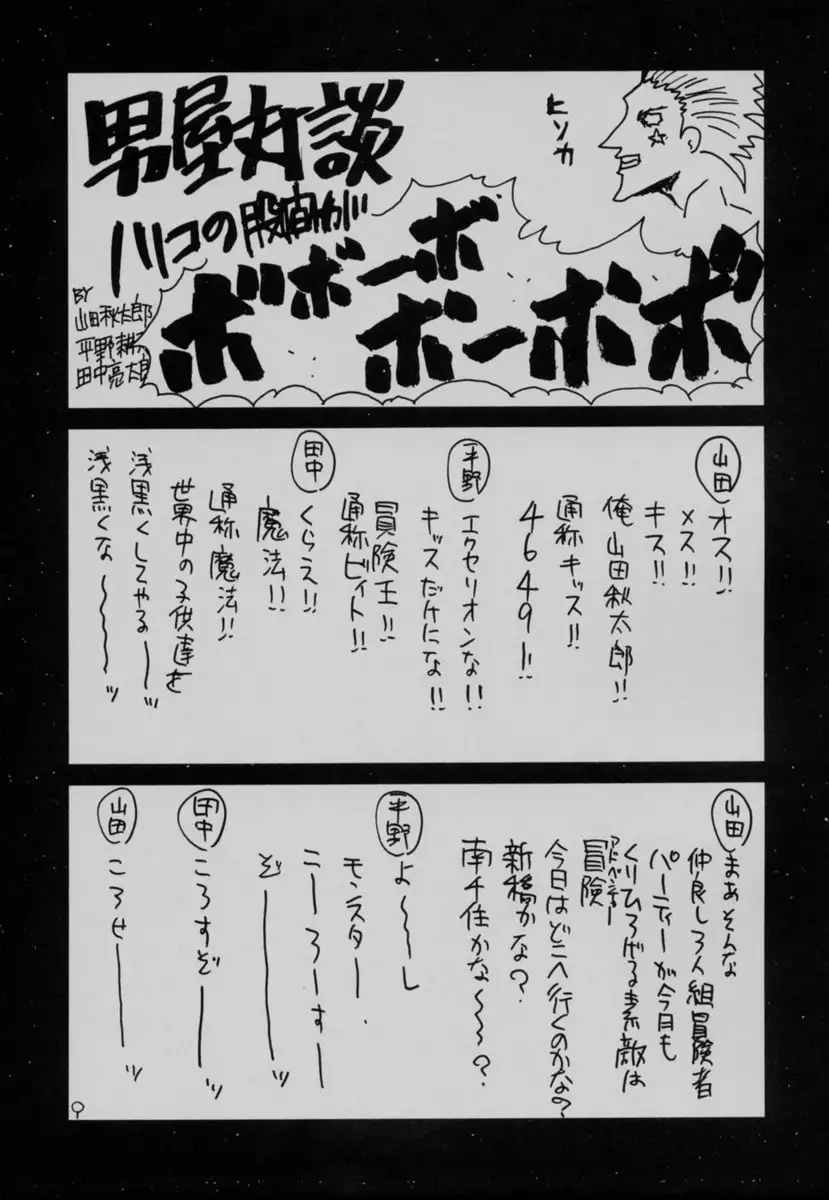 男屋対談
ハリコの股間が
ボボーボ
ボーボボ
ヒソカ
BY
山田秋太郎
平野耕太
田中亮太郎
山田
オス!!
メス!!
キス!!
俺山田秋太郎!!
通称キッス!!
4649!!
平野
エクセリオンな!!
キッスだけにな!!
冒険王!!
通称ビィト!!
田中
くらえ!!
魔法!!
通称魔法!!
世界中の子供達を
浅黒くしてやる〜〜ッ
浅黒くな〜〜〜ッ
山田
まあそんな
仲良し3人組冒険者
パーティーが今日も
くりひろげる素敵な
冒険
アドベンチャー
今日はどこへ行くのかな?
新橋かな?
南千住かな〜〜?
平野
よ〜〜し
モンスター
こーろーすー
ぞーーーッ
田中
ころすぞーーッ
山田
ころせーーーッ
9